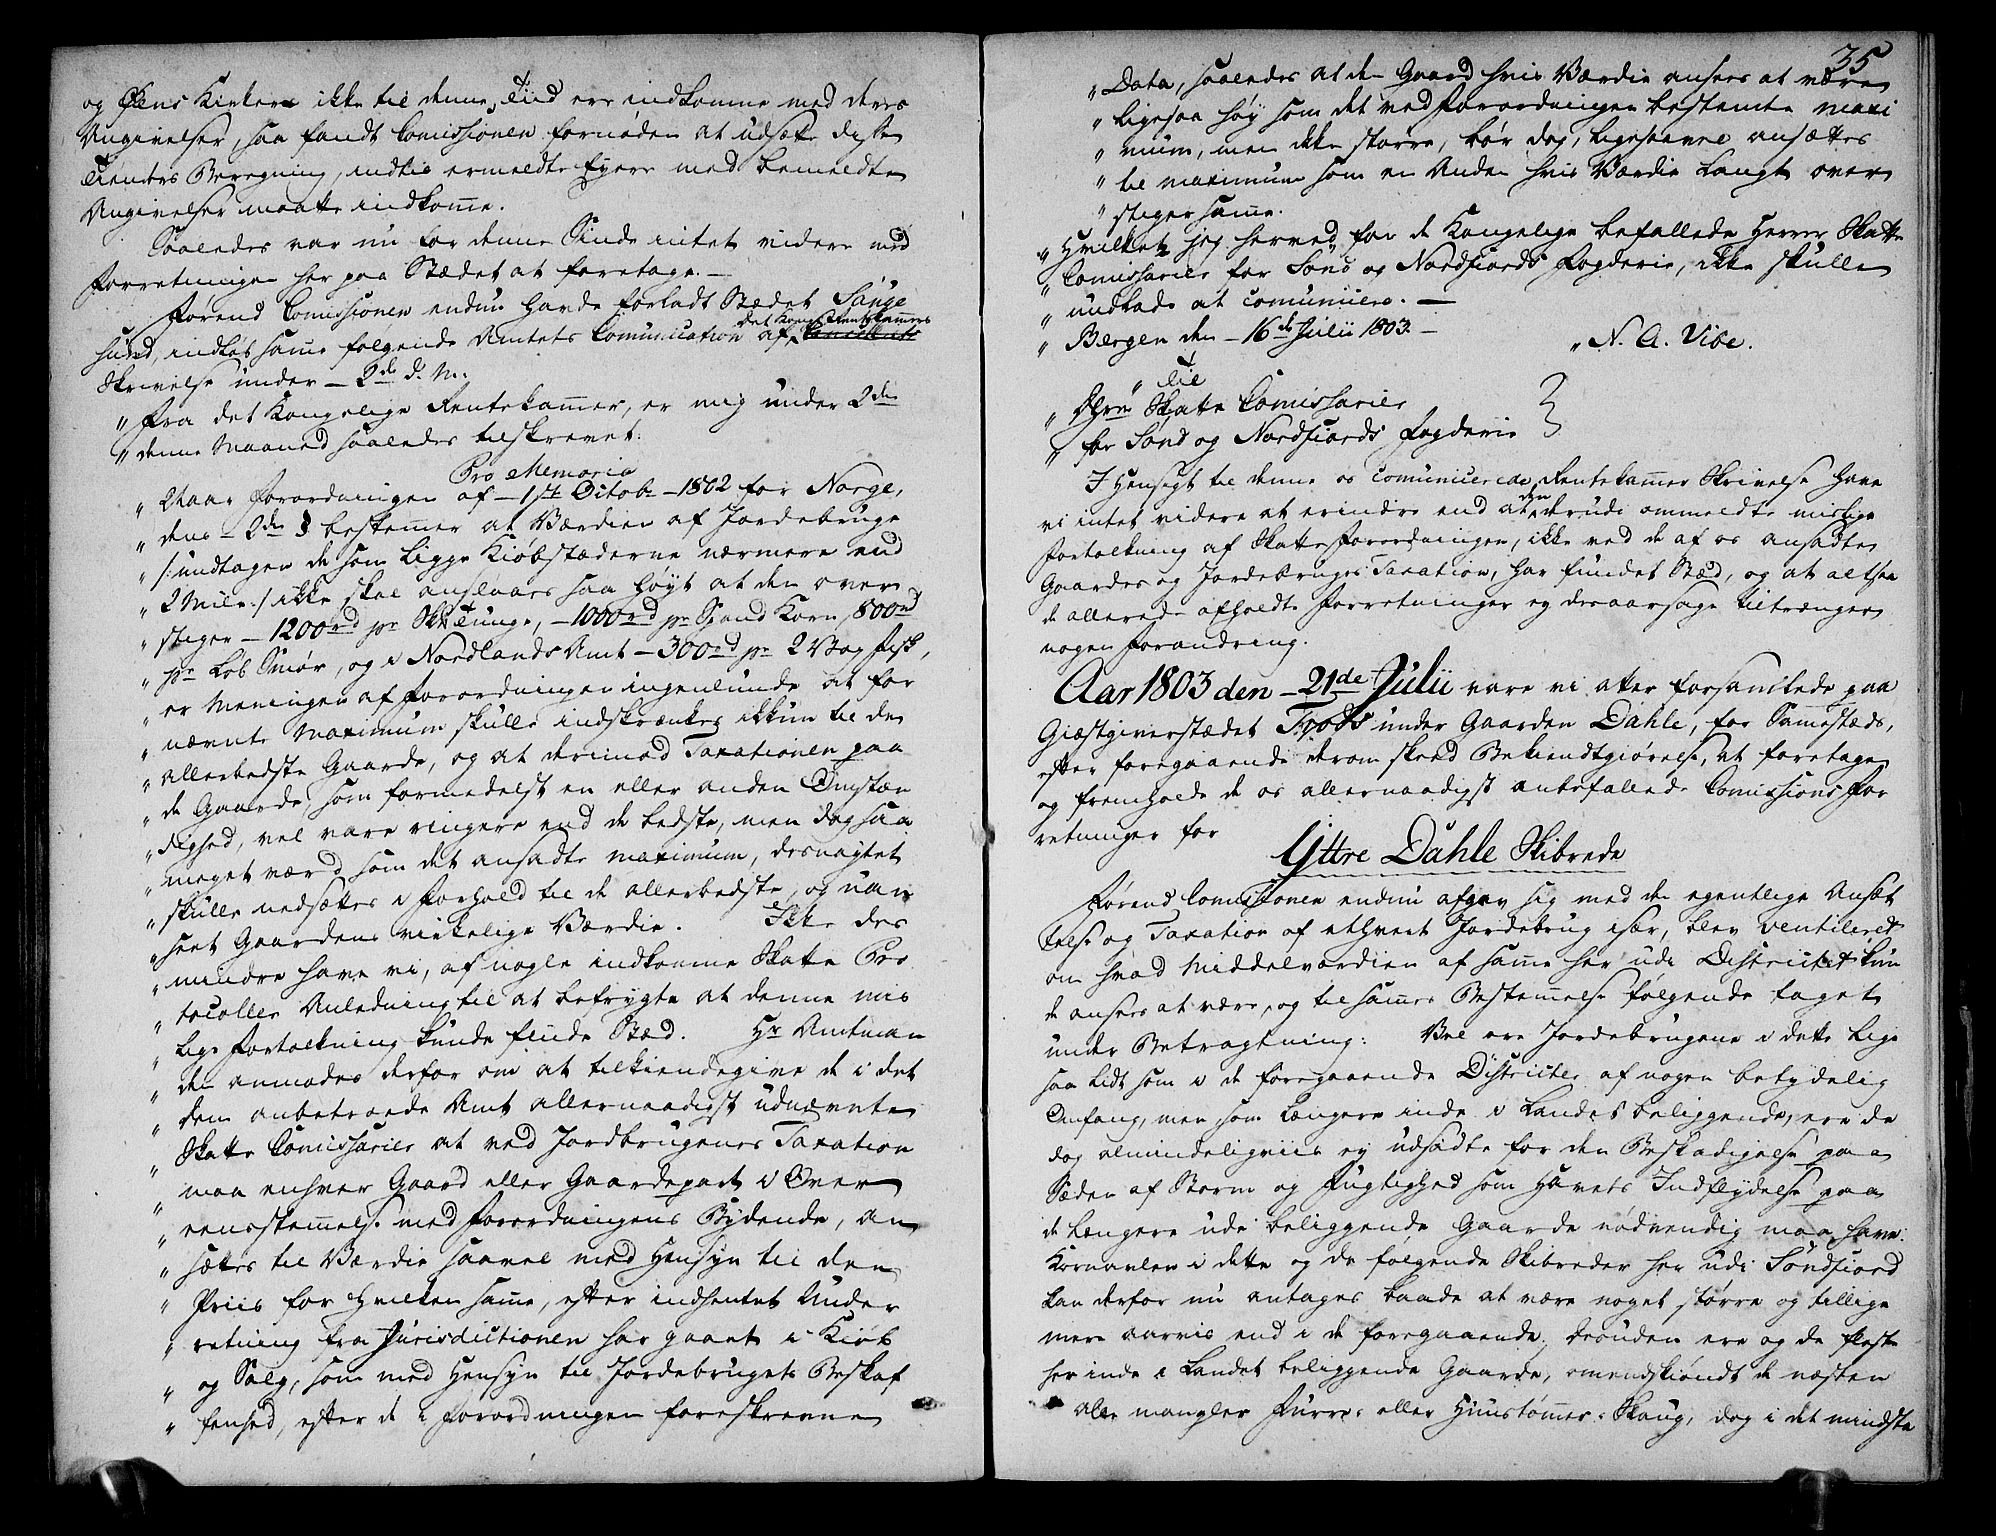 og Øens Kirker ikke til denne Tiid ere indkomne med deres
Angivelser, saa fandt Comissionen fornøden at udsætte disse
Tienders Beregning, indtil ermeldte Eyere med bemeldte
Angivelser maatte indkom̅e.
Saaledes var nu for denne Sinde intet videre med
Forretningen her paa Stædet at foretage. —
Førend Comissionen endnu havde forladt Stædet Sauge
sund, indløb sam̅e følgende Amtets Comunication af det Kongl. Rentekam̅ers
Skrivelse under — 2de d. M.
" Fra det Kongelige Rentekam̅er, er mig under 2den
" denne Maaned saaledes tilskrevet:
Pro Memoria
" Naar Forordningen af — 1ste Octobr — 1802 for Norge,
" dens — 2den § bestem̅er at Værdien af Jordebruge
" /: undtagen de som Ligge Kiøbstæderne nærmere end
" 2 Mile :/ ikke skal anslaaes saa høyt at den over
" stiger — 1200rd pr Skt Tunge, — 1000rd pr Spand Korn, 800rd
" pr Lob Smør, og i Nordlands Amt — 300rd pr 2 Vog Fisk,
" er Meningen af Forordningen ingenlunde at for
" nævnte Maximum skulle indskrænkes ikkun til de
" allerbedste Gaarde, og at derimod Taxationen paa
" de Gaarde, som formedelst en eller anden Omstæn
" dighed, vel vare ringere end de bedste, men dog saa
" meget værd som det ansadte maximum, desuagtet
" skulle nedsættes i Forhold til de allerbedste, og uan
" seet Gaardens virkelige Værdie. Ikke des
" mindre have vi, af nogle indkomne Skatte Pro
" tocoller Anledning til at befrygte at denne mis
" lige Fortolkning kunde finde Stæd. Hr Amtman
" den anmodes derfor om at tilkiendegive de i det
" dem anbetroede Amt allernaadigst udnævnte
" Skatte Comissarier at ved Jordbrugenes Taxation
" maa enhver Gaard eller Gaardepart i Over
" eensstem̅else med Forordningens Bydende, an
" sættes til Værdie saavel med Hensyn til den
" Priis for hvilken sam̅e, efter indhentet Under
" retning fra Jurisdictionen har gaaet i Kiøb
" og Salg, som med Hensyn til Jordebrugets Beskaf
" fenhed, efter de i Forordningen foreskrevne
35
" Data, saaledes at den Gaard hvis Værdie ansees at være
" ligesaa høy som det ved Forordningen bestemte maxi
" mum, men ikke større, bør dog, ligesaavel ansættes
" til maximum som en Anden hvis Værdie langt over
" stiger sam̅e.
" Hvilket jeg herved for de Kongelige befallede Herrer Skatte
" Comissarier for Sønd og Nordfiords Fogderie, ikke skulle
" undlade at comunicere. —
" Bergen den — 16de Julii 1803. —
" N. A. Vibe.
" Til
" Hrr Skatte Comissarier
" for Sønd og Nordfiords Fogderie
I Hensigt til denne os comunicerede Rentekam̅er Skrivelse have
vi intet videre at erindre end at den derudi ommeldte mislige
Fortolkning af Skatte Forordningen, ikke ved de af os ansadte
Gaardes og Jordebruges Taxation, har fundet Stæd, og at altsaa
de allerede afholdte Forretninger ey desaarsage tiltrænger
nogen Forandring.
Aar 1803 den — 21de Julii vare vi atter forsamlede paa
Giæstgiverstædet Trods under Gaarden Dahle, for Sam̅estæds,
efter foregaaende derom skeed Bekiendtgiørelse, at foretage
og fremholde de os allernaadigst anbefallede Comissions For
retninger for
Yttre Dahle Skibrede
Førend Comissionen endnu afgav sig med den egentlige Ansæt
telse og Taxation af ethvert Jordebrug især, blev ventileret
om hvad Middelværdien af sam̅e her udi Districtet kun
de ansees at være, og til sam̅es Bestem̅else følgende taget
under Betragtning: Vel ere Jordebrugene i dette lige
saa lidt som i de foregaaende Districter af nogen betydelig
Omfang, men som længere inde i Landet beliggende, ere de
dog almindeligviis ey udsadte for den Beskadigelse paa
Sæden af Storm og Fugtighed som Havets Indflydelse paa
de længere ude beliggende Gaarde nødvendig maa have:
Kornavlen i dette og de følgende Skibreder her udi Søndfiord
kan derfor nu antages baade at være noget større og tillige
mere aarvis end i de foregaaende; desuden ere og de fleste
her inde i Landet beliggende Gaarde, omendskiøndt de næsten
alle mangler Furre- eller Huustøm̅er-Skoug, dog i det mindste